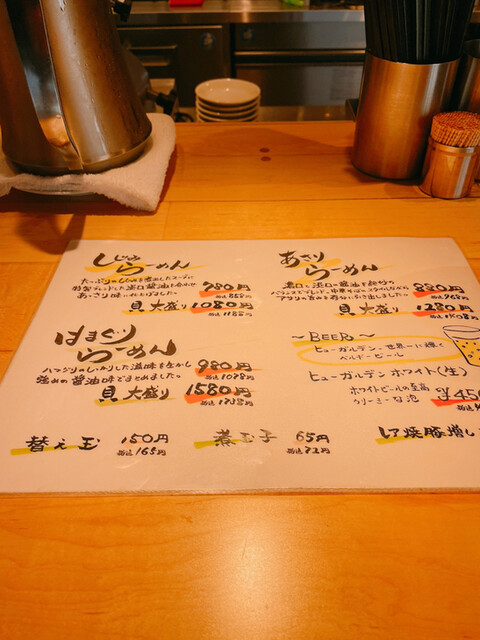 しじみらーめん
たっぷりのしじみを煮出したスープに
特製ブレンドした淡口醤油を合わせ
あっさり味に仕上げました。
780円
税込858円
貝大盛り 1080円
税込1188円
はまぐりらーめん
ハマグリのしっかりした滋味を生かし
強めの醤油味でまとめました。
980円
税込1078円
貝大盛り 1580円
税込1738円
あさりらーめん
濃口と淡口の醤油を絶妙の
バランスでブレンド。中華そばっぽさがありながら
アサリの旨みを存分に引き出しました。
880円
税込968円
貝大盛り 1280円
税込1408円
~BEER~
ヒューガルデン、世界一白く輝く
ベルギービール
ヒューガルデンホワイト(生)
ホワイトビールの至高
クリーミーな泡
¥450
替え玉 150円
税込165円
煮玉子 65円
税込72円
レア焼豚増し